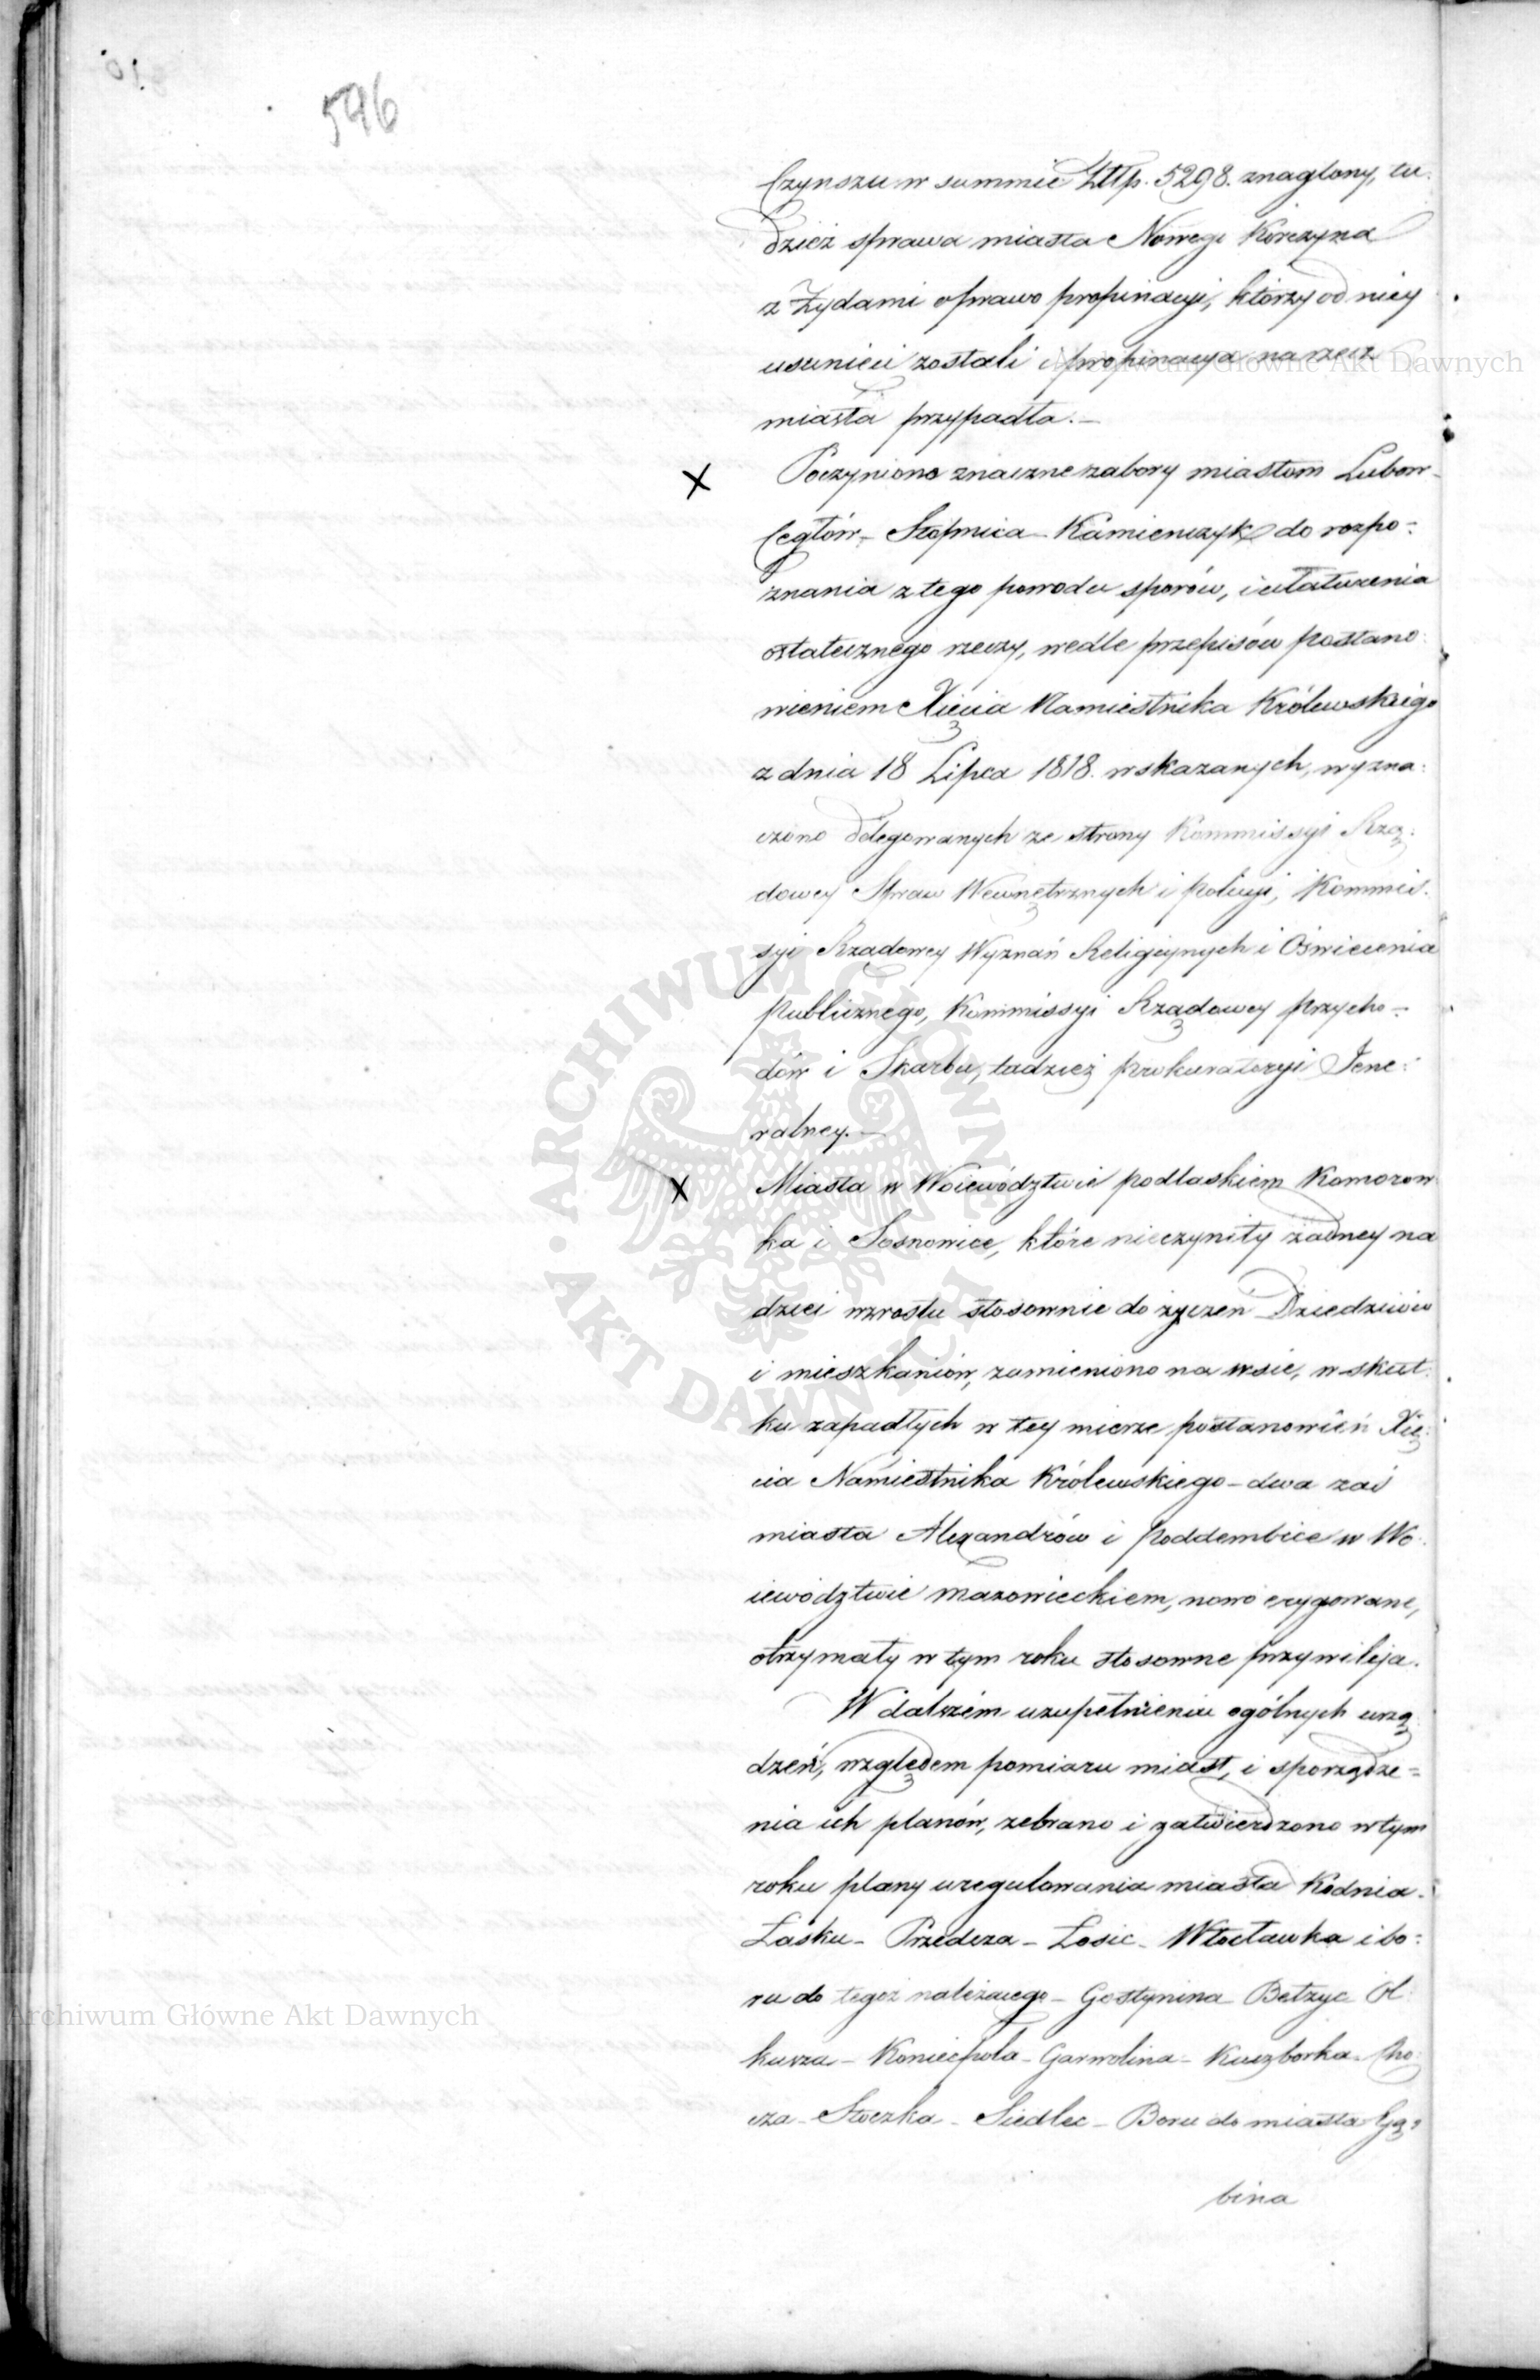 596
Czynszu w summie Złtp. 5298. znaglony, tu-
dzież sprawa miasta Nowego Korczyna
z Żydami o prawo propinacyi, którzy od niey
usunieci zostali i propinacya na rzecz
miasta przypadła.—
X Poczyniono znaczne zabory miastom Lubow-
Cegłów – Stopnica – Kamienczyk do rozpo-
znania z tego powodu sporów, i ułatwienia
ostatecznego rzeczy, wedle przepisów postano-
wieniem Xięcia Namiestnika Królewskiego
z dnia 18 Lipca 1818. wskazanych, wyzna-
czono delegowanych ze strony Kommissyi Rzą-
dowey Spraw Wewnętrznych i policyi, Kommis-
syi Rządowey Wyznań Religiynych i Oświecenia
publicznego, Kommissyi Rządowey przycho-
dów i Skarbu, tudzież prokuratoryi Jene-
ralney.—
X Miasta w Woiewództwie podlaskiem Komorow-
ka i Sosnowice, które nieczyniły żadney na
dziei wzrostu stosownie do życzeń Dziedziców
i mieszkańców, zamieniono na wsie, w skut-
ku zapadłych w tey mierze postanowień Xię-
cia Namiestnika Królewskiego – dwa zaś
miasta Alexandrów i Poddembice w Wo-
iewództwie mazowieckiem, nowo erygowane,
otrzymały w tym roku stosowne przywileja.
W dalszém uzupełnieniu ogólnych urzą-
dzeń, względem pomiaru miast, i sporządze-
nia ich planów, zebrano i zatwierdzono w tym
roku plany uregulowania miasta Kodnia-
Łasku – Przedcza – Łosic – Włocławka i bo-
ru do tegoż należącego – Gostynina Bełżyc Ol-
kusza – Koniecpola – Garwolina – Kuczborka – Cho-
cza – Stoczka – Siedlec – Boru do miasta Gą-
bina
Archiwum Główne Akt Dawnych
Archiwum Główne Akt Dawnych
ARCHIWUM GŁÓWNE
AKT DAWNYCH